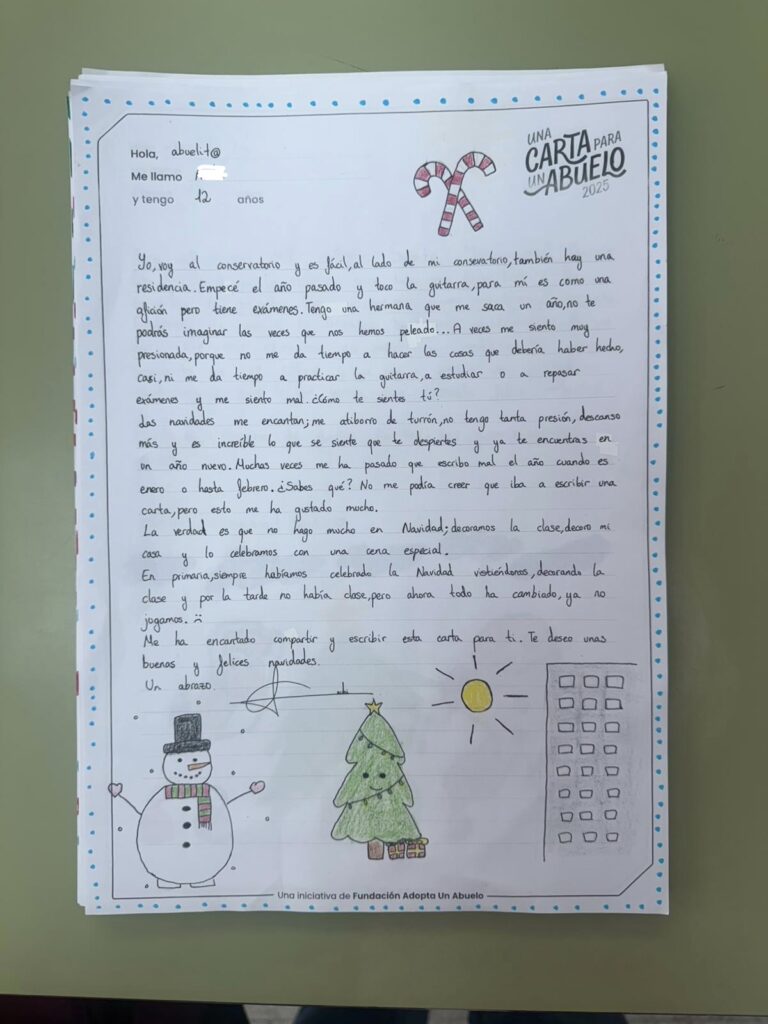 Hola, abuelit@
UNA
CARTA PARA
UN ABUELO
2025
Me llamo
y tengo 12 años
Yo, voy al conservatorio y es fácil, al lado de mi consevatorio, también hay una
residencia. Empecé el año pasado y toco la guitarra, para mí es como una
afición pero tiene exámenes. Tengo una hermana que me saca un año, no te
podrás imaginar las veces que nos hemos peleado... A veces me siento muy
presionada, porque no me da tiempo a hacer las cosas que debería haber hecho,
casi, ni me da tiempo a practicar la guitarra, a estudiar o a repasar
exámenes y me siento mal. ¿Cómo te sientes tú?
Las navidades me encantan; me atiborro de turrón, no tengo tanta presión, descanso
más y es increíble lo que se siente que te despiertes y ya te encuentras en
un año nuevo. Muchas veces me ha pasado que escribo mal el año cuando es
enero o hasta febrero. ¿Sabes qué? No me podía creer que iba a escribir una
carta, pero esto me ha gustado mucho.
La verdad es que no hago mucho en Navidad; decoramos la clase, decoro mi
casa y lo celebramos con una cena especial.
En primaria, siempre habíamos celebrado la Navidad vistiéndonos, decorando la
clase y por la tarde no había clase, pero ahora todo ha cambiado, ya no
jogamos.
Me ha encantado compartir y escribir esta carta para ti. Te deseo unas
buenas y felices navidades.
Un abrazo
Una iniciativa de Fundación Adopta Un Abuelo